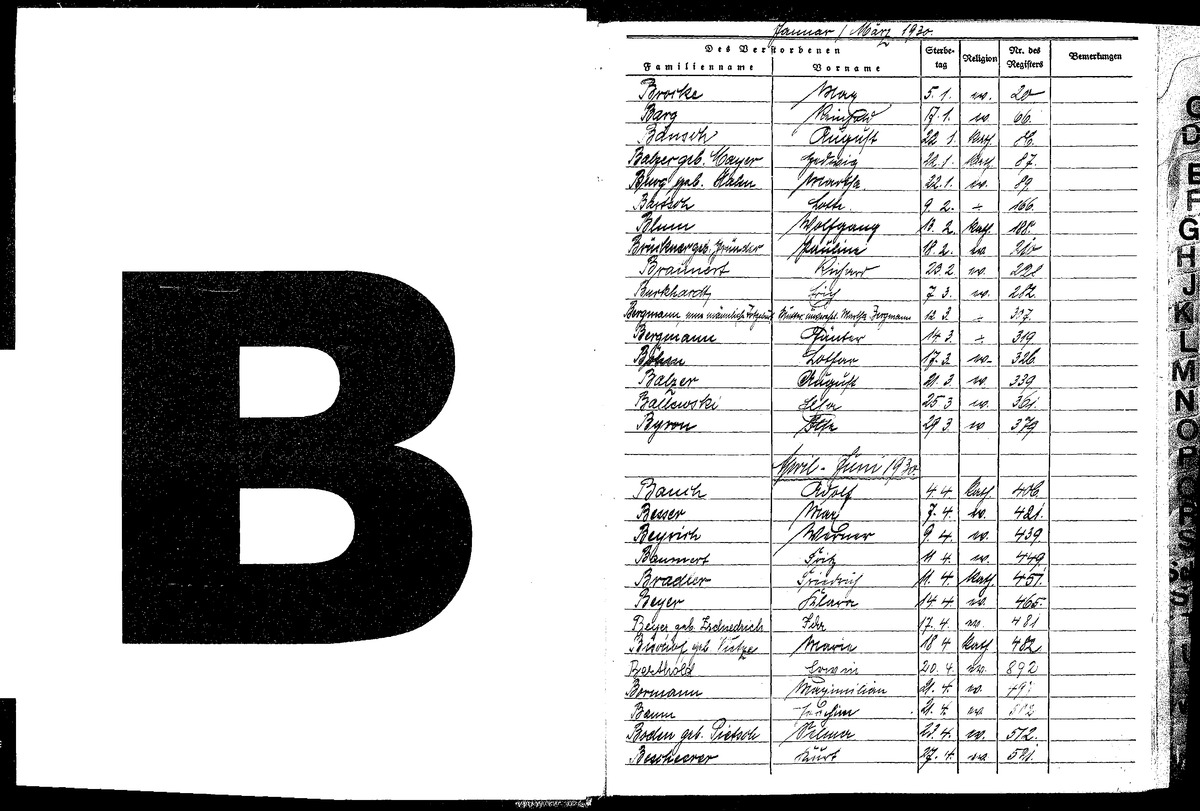 B
Januar / März 1930.
Des Verstorbenen Sterbetag Religion Nr. des Registers Bemerkungen
Familienname Vorname
Brocke Max 5. 1. ev. 20
Barg 17. 1. ev. 66.
Bänsch August 22. 1. kath.
Balzer geb. Mayer Hedwig 21. 1. kath. 87.
Burg geb. Hahn Martha 22. 1. ev. 89.
Bartsch Lotte 9. 2. ÷ 166.
Blum Wolfgang 13. 2. kath. 188.
Brückner geb. Gründer Pauline 18. 2. ev. 210
Braunert Richard 23. 2. ev. 221
Burkhardt Erich 7. 3. ev. 282.
Bergmann, eine männliche Totgeburt Mutter unverehl. Martha Bergmann 12. 3. ÷ 307.
Bergmann Günter 14. 3. ÷ 319
Böhm Lothar 17. 3. ev. 326.
Balzer August 21. 3. ev. 339
Ballewski Elsa 25 3 ev. 361.
Byron 29 3. ev. 379
April - Juni 1930.
Bauch Adolf 4 4 kath. 406.
Besser Max 7. 4. ev. 421.
Beyrich Werner 9. 4. ev. 439.
Baumert Fritz 11. 4. ev. 449.
Bradler Friedrich 11. 4. kath. 451.
Beyer Klara 14 4 ev. 465.
Beyer geb. Ida 17. 4. ev. 481
geb. Marie 18 4 kath. 482
Berthold Erwin 20. 4. ev. 892
Bormann Maximilian 21. 4. ev. 491
Baum Joachim 21. 4. ev.
Boden geb. Pietsch Selma 23. 4. ev. 512.
Bescheerer Kurt 27. 4. ev. 521.
C
D
E
F
G
H
I
J
K
L
M
N
O
P
Q
R
S